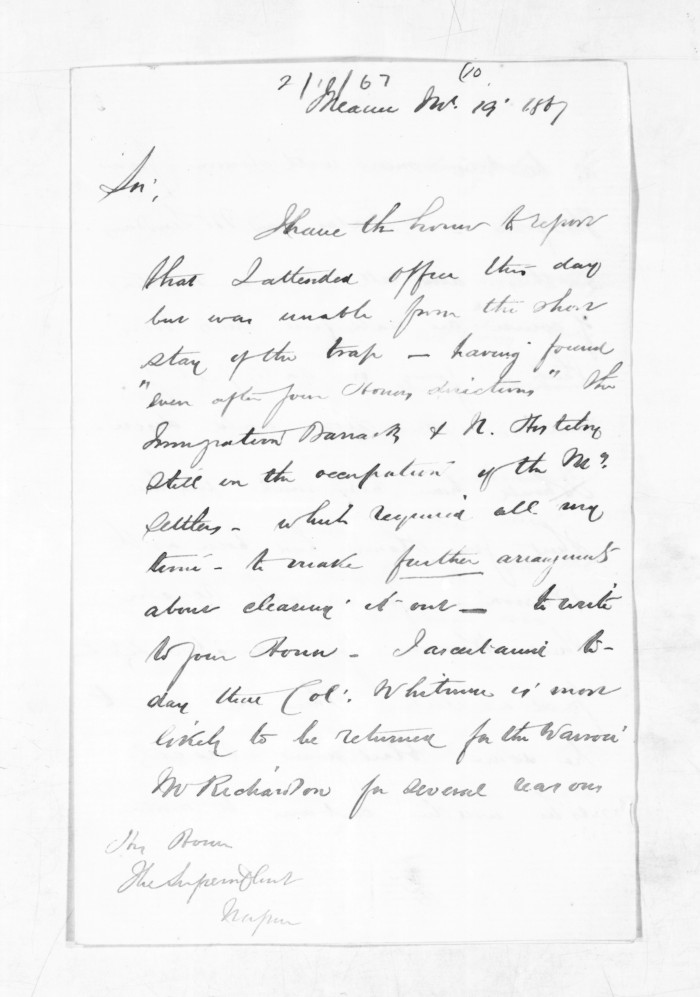 2/12/67
(10
Meanee Nov. 19. 1867
Sir,
I have the honor to report
that I attended office this day
but was unable from the short
stay of the trap — having found
"even after your Honors directions" the
Immigration Barracks & N. Hostelry
still in the occupation of the Mr.
Settlers — which required all my
time — to make further arrangments
about clearing it out — to write
to your Honor — I ascertained to-
day that Col. Whitmore is most
likely to be returned for the Wairoa
Mr Richardson for several reasons
His Honor
The Superintdent
Napier